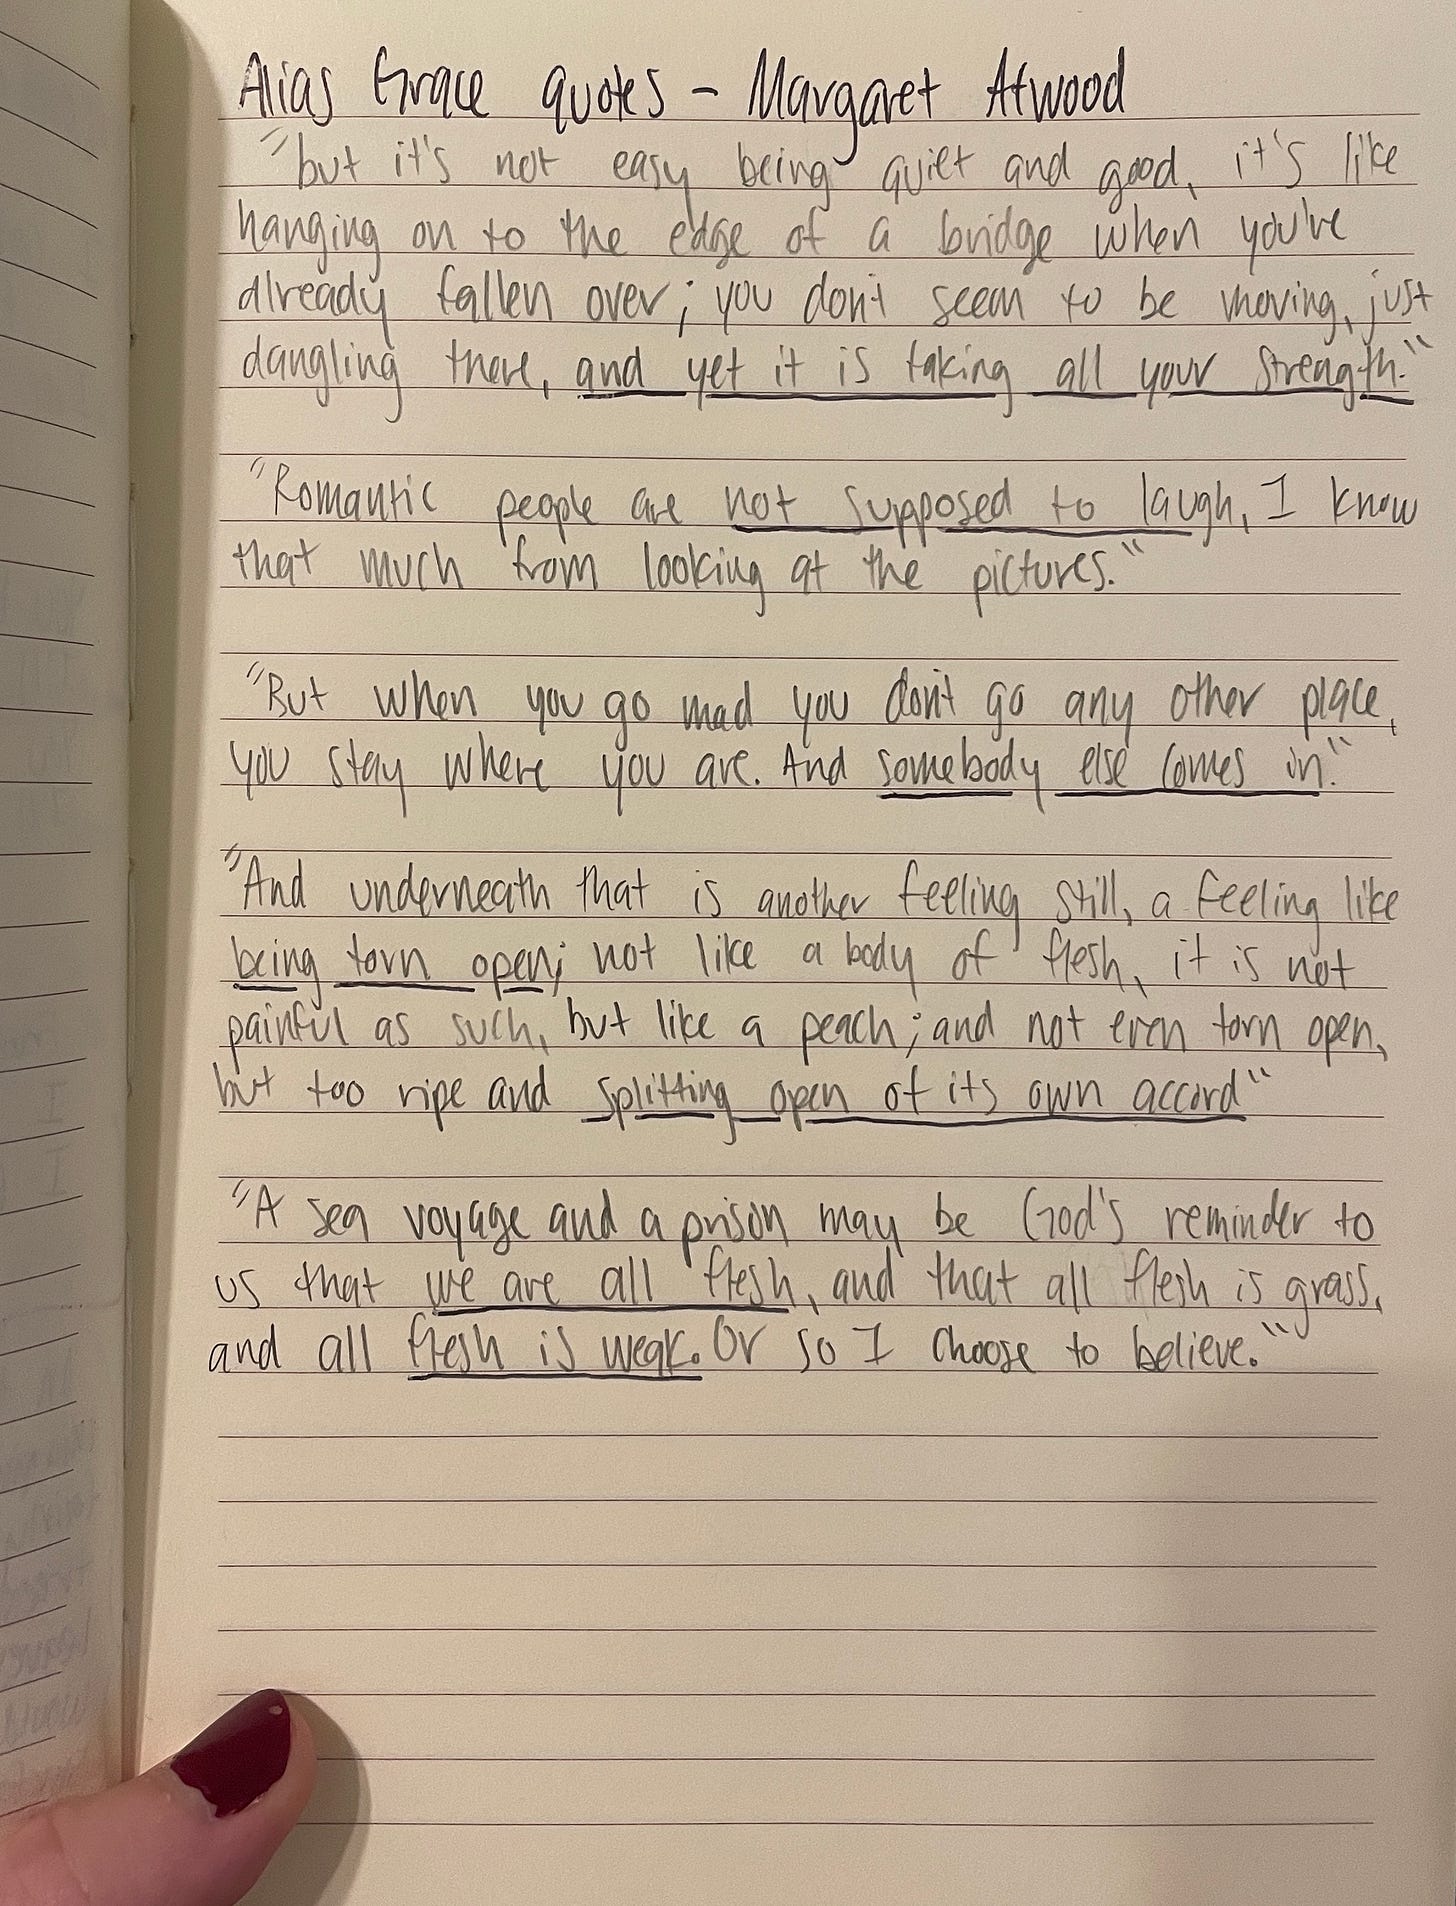 Alias Grace quotes - Margaret Atwood
"but it's not easy being quiet and good, it's like
hanging on to the edge of a bridge when you've
already fallen over; you don't seem to be moving, just
dangling there, and yet it is taking all your strength."
"Romantic people are not supposed to laugh, I know
that much from looking at the pictures."
"But when you go mad you don't go any other place,
you stay where you are. And somebody else comes in."
"And underneath that is another feeling still, a feeling like
being torn open; not like a body of flesh, it is not
painful as such, but like a peach; and not even torn open,
but too ripe and splitting open of its own accord"
"A sea voyage and a prison may be God's reminder to
us that we are all flesh, and that all flesh is grass,
and all flesh is weak. Or so I choose to believe."